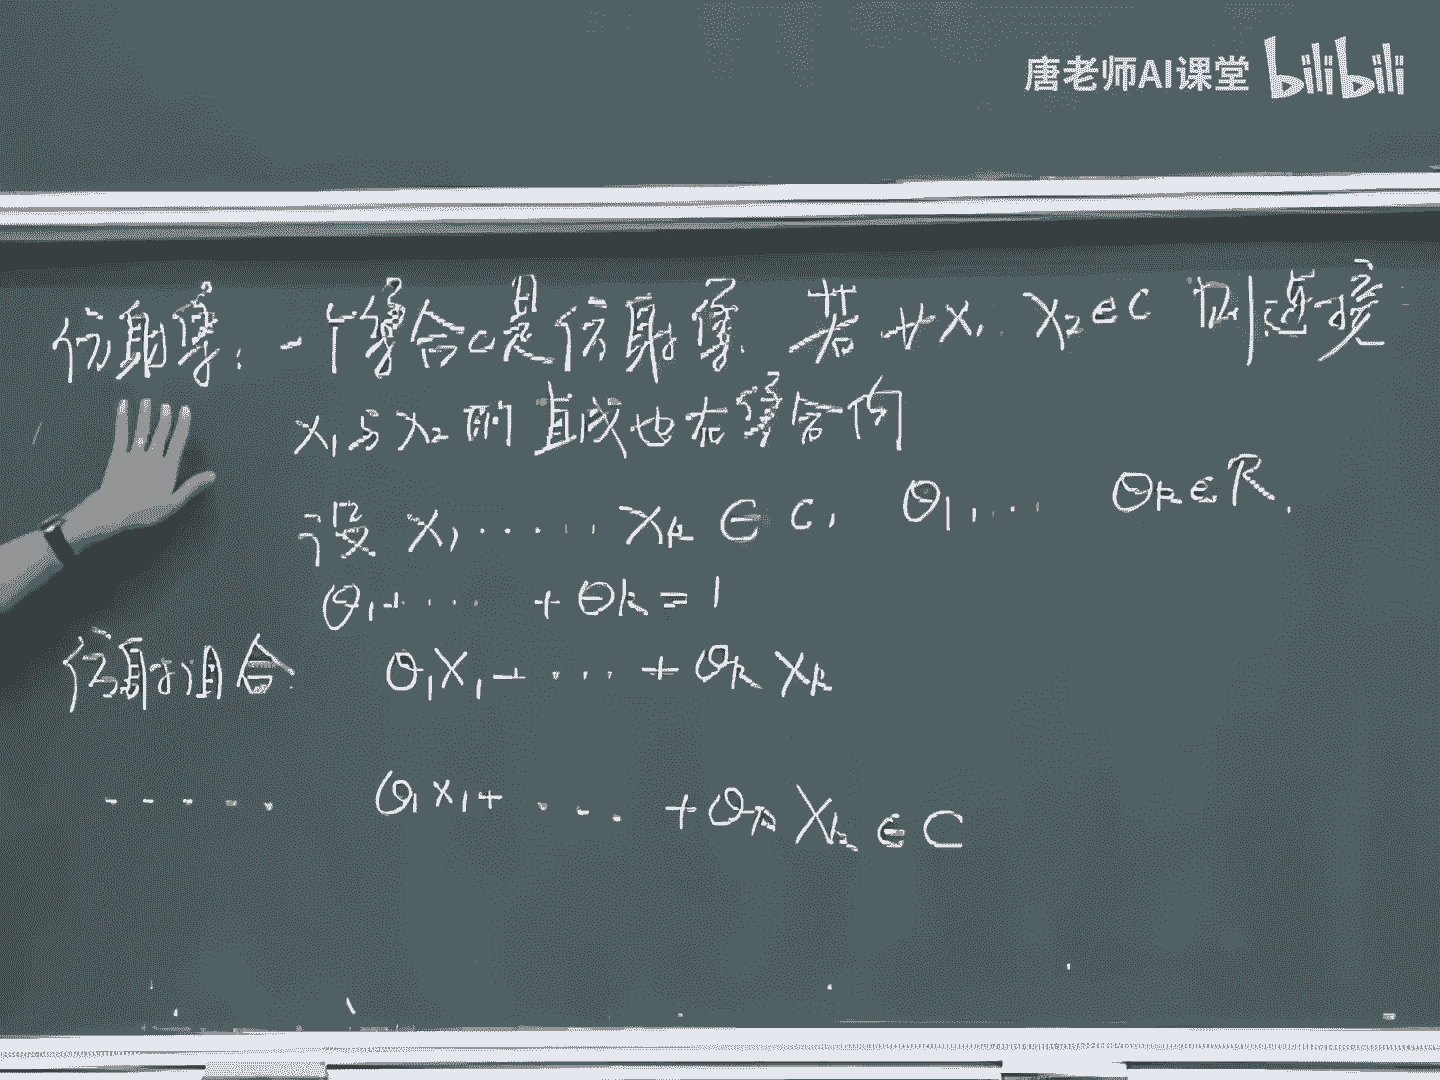 唐老师AI课堂 bilibili
仿射集: 一个集合C是仿射集. 若∀x₁ x₂∈C 则连接
x₁与x₂的直线也在集合内
设 x₁ ...... x_k ∈ C, θ₁, ... θ_k∈R.
θ₁+ ... + θ_k = 1
仿射组合 θ₁x₁+ ... + θ_k x_k
..... θ₁x₁+ ... + θ_k x_k ∈ C